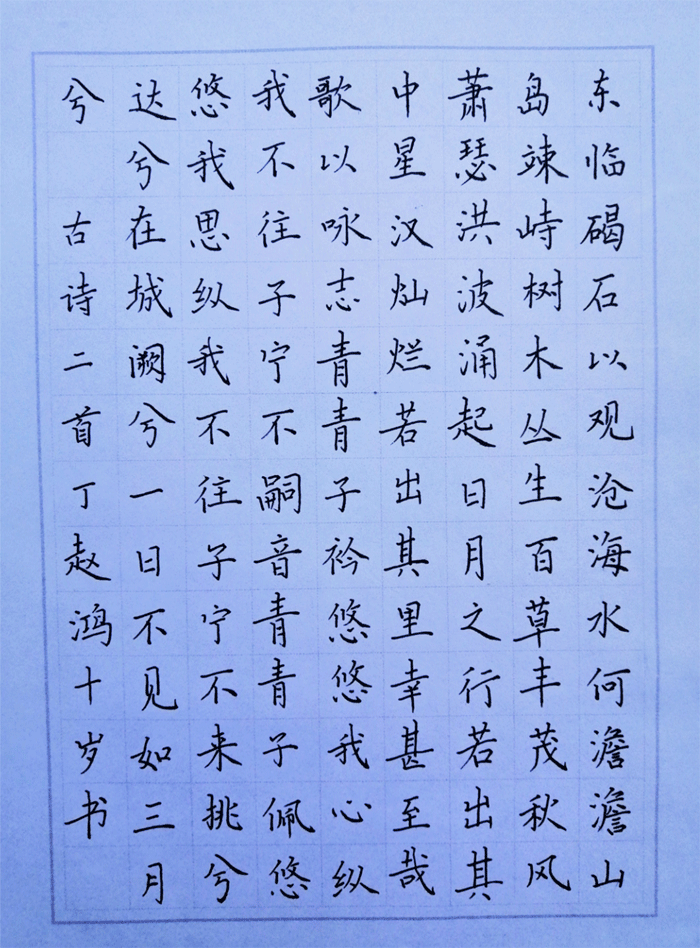 东临碣石以观沧海水何澹澹山
岛竦峙树木丛生百草丰茂秋风
萧瑟洪波涌起日月之行若出其
中星汉灿烂若出其里幸甚至哉
歌以咏志青青子衿悠悠我心纵
我不往子宁不嗣音青青子佩悠
悠我思纵我不往子宁不来挑兮
达兮在城阙兮一日不见如三月
兮 古诗二首丁赵鸿十岁书